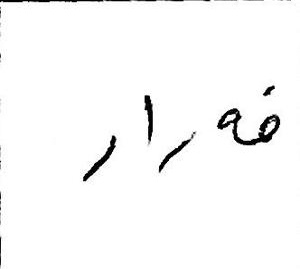 فەرار